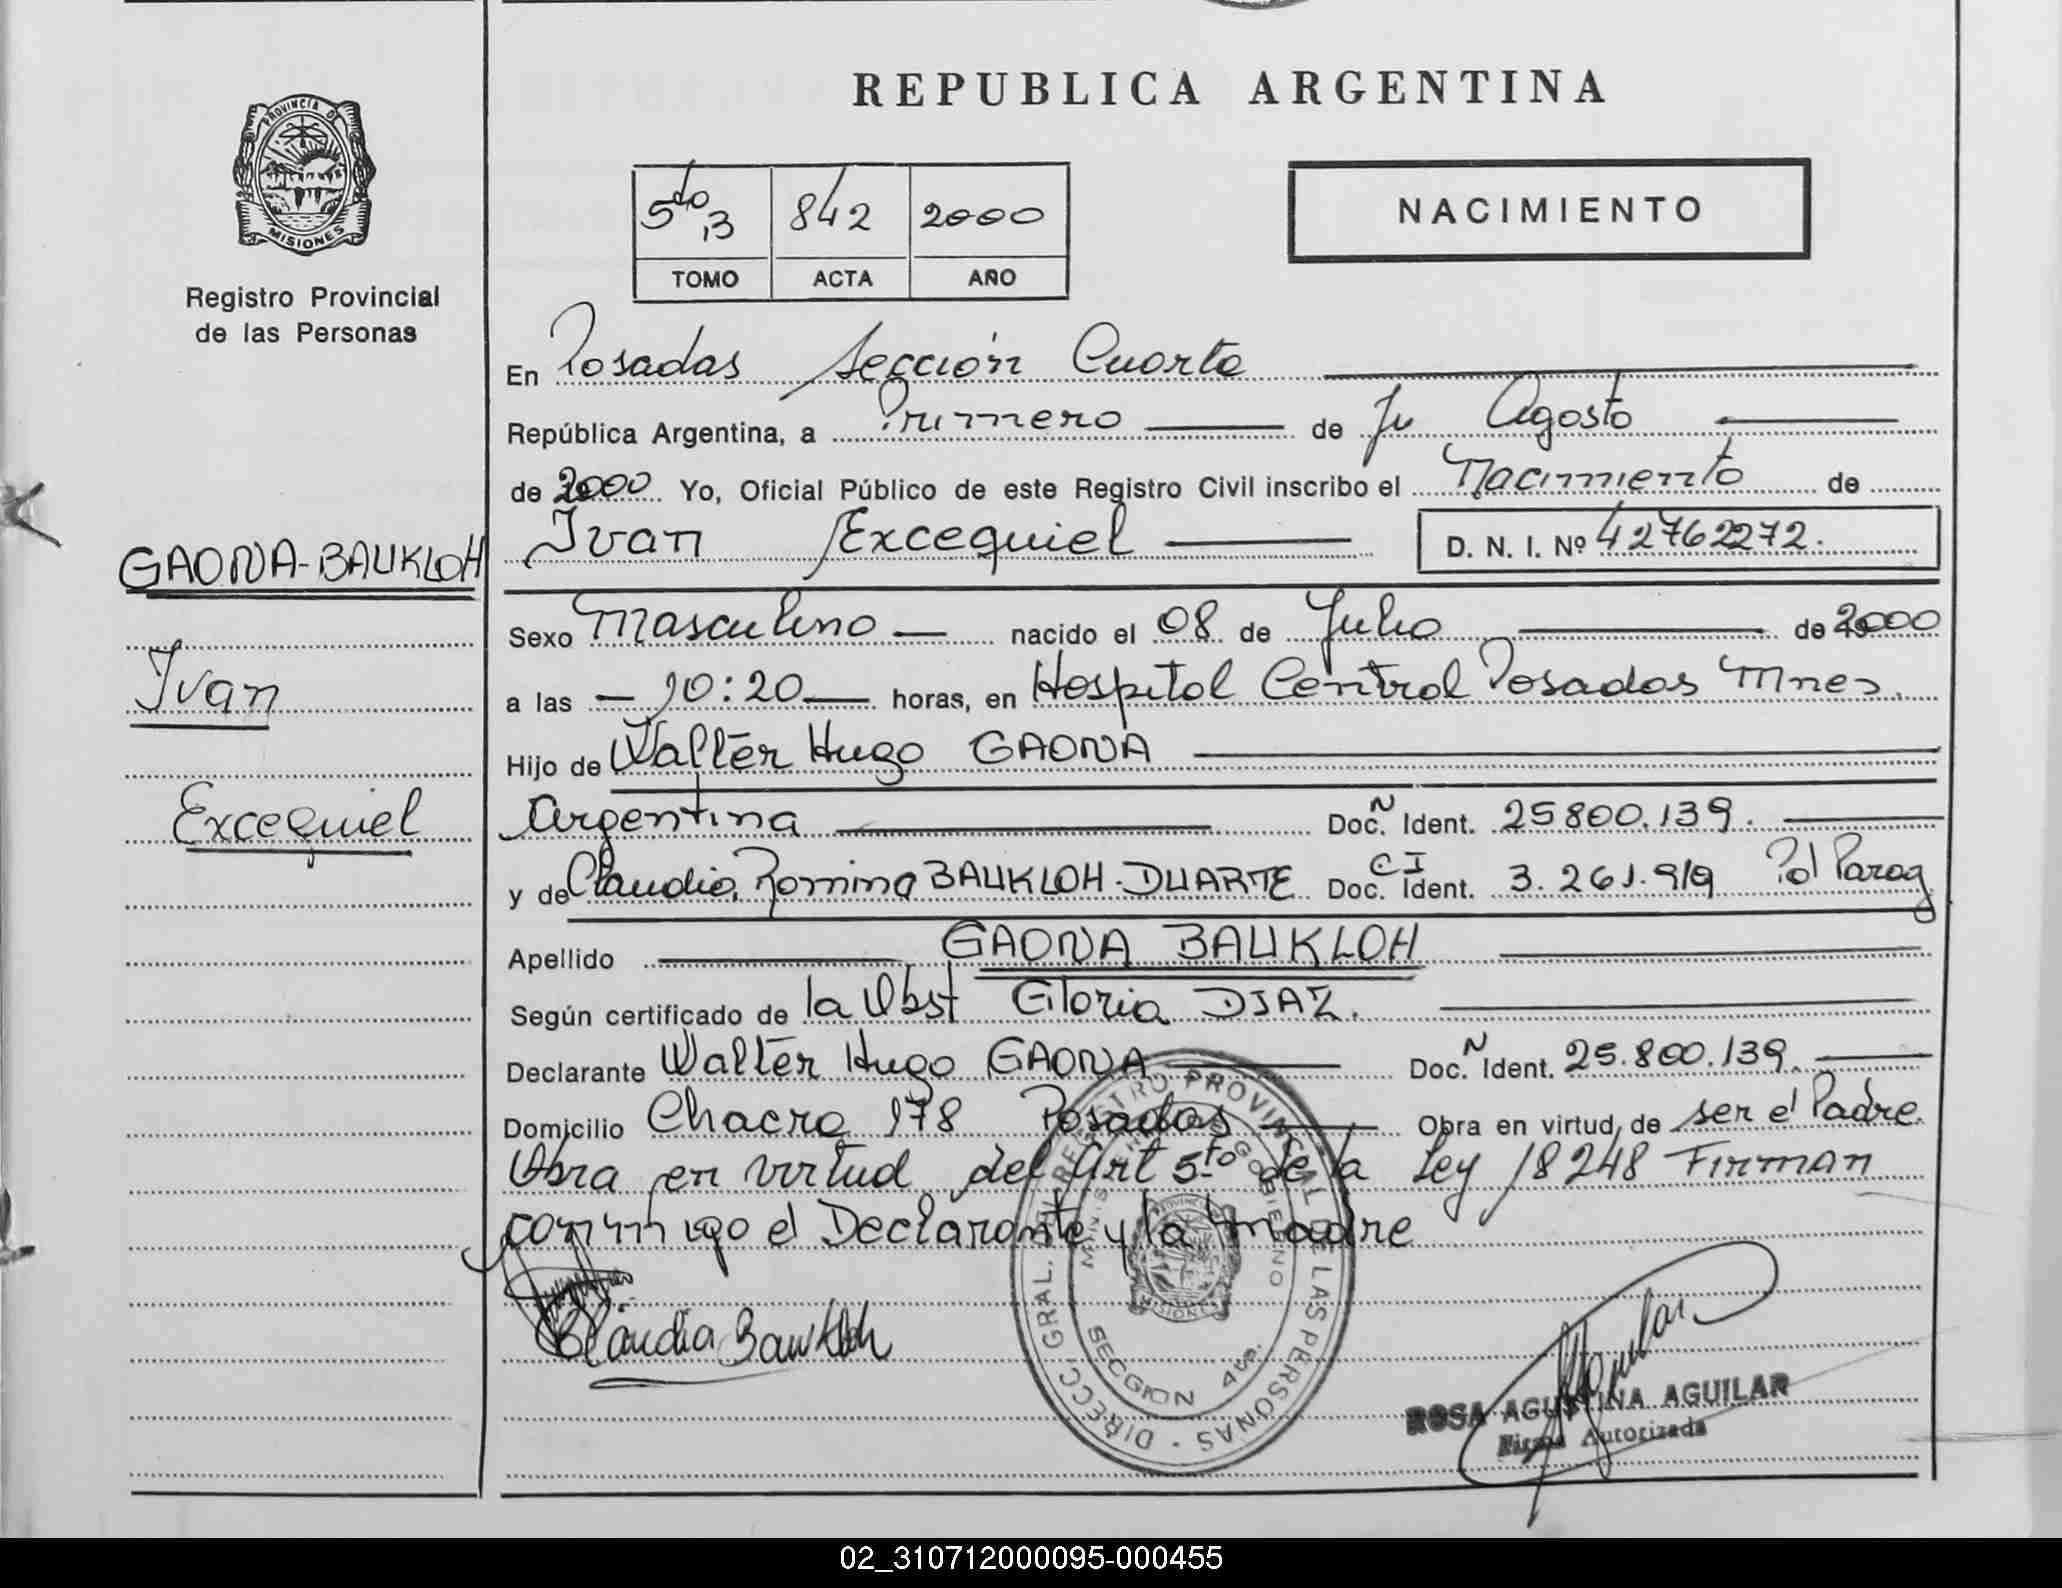 REPUBLICA ARGENTINA
PROVINCIA DE
MISIONES
Registro Provincial
de las Personas
5to B 842 2000
TOMO ACTA AÑO
NACIMIENTO
En Posadas Sección Cuarta
República Argentina, a Primero de Agosto
de 2000 Yo, Oficial Público de este Registro Civil inscribo el Nacimiento de
Ivan Excequiel D. N. I. Nº 42762272.
GAONA-BAUKLOH
Ivan
Excequiel
Sexo Masculino nacido el 08 de Julio de 2000
a las 10:20 horas, en Hospital Central Posadas Mnes.
Hijo de Walter Hugo GAONA
Argentina Doc. N Ident. 25800.139.
y de Claudia Romina BAUKLOH-DUARTE Doc. CI Ident. 3.261.919 Pol Parag
Apellido GAONA BAUKLOH
Según certificado de la Obst Gloria DIAZ.
Declarante Walter Hugo GAONA Doc. N Ident. 25.800.139.
Domicilio Chacra 178 Posadas Obra en virtud de ser el Padre.
Obra en virtud del Art 5to de la Ley 18248 Firman
conmigo el Declarante y la Madre
Claudia Baukloh
DIRECC. GRAL. DEL REGISTRO PROVINCIAL DE LAS PERSONAS
MINISTERIO DE GOBIERNO
MISIONES
SECCION 4ta.
Aguilar
ROSA AGUSTINA AGUILAR
Firma Autorizada
02_310712000095-000455